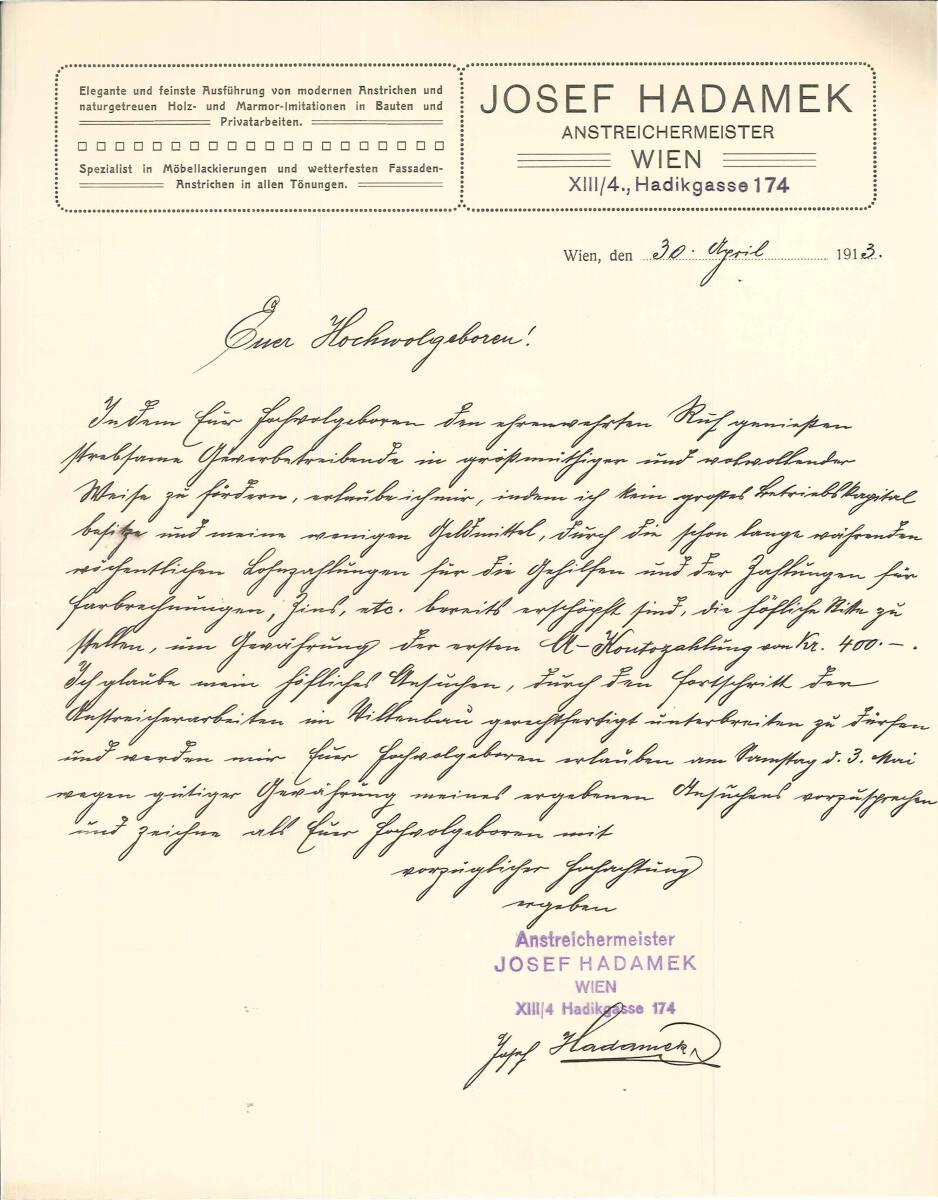 Elegante und feinste Ausführung von modernen Anstrichen und
naturgetreuen Holz- und Marmor-Imitationen in Bauten und
Privatarbeiten.
Spezialist in Möbellackierungen und wetterfesten Fassaden-
Anstrichen in allen Tönungen.
JOSEF HADAMEK
ANSTREICHERMEISTER
WIEN
XIII/4., Hadikgasse 174
Wien, den 30. April 1913.
Euer Hochwolgeboren!
In dem Euer Hochwolgeboren den ehrenwehrten Ruf genießen
strebsame Gewerbetreibende in großmüthiger und wolwollender
Weise zu fördern, erlaube ich mir, indem ich kein großes Betriebskapital
besitze und meine wenigen Geldmittel, durch die schon lange währenden
wöchentlichen Lohnzahlungen für die Gehilfen und der Zahlungen für
Farbrechnungen, Zins, etc. bereits erschöpft sind, die höfliche Bitte zu
stellen, um Gewährung der ersten A-Kontozahlung von Kr. 400.–.
Ich glaube mein höfliches Ansuchen, durch den Fortschritt der
Anstreicherarbeiten im Villenbau gerechtfertigt unterbreiten zu dürfen
und werden mir Euer Hochwolgeboren erlauben am Samstag d. 3. Mai
wegen gütiger Gewährung meines ergebenen Ansuchens vorzusprechen
und zeichne als Euer Hochwolgeboren mit
vorzüglicher Hochachtung
ergeben
Anstreichermeister
JOSEF HADAMEK
WIEN
XIII/4 Hadikgasse 174
Josef Hadamek